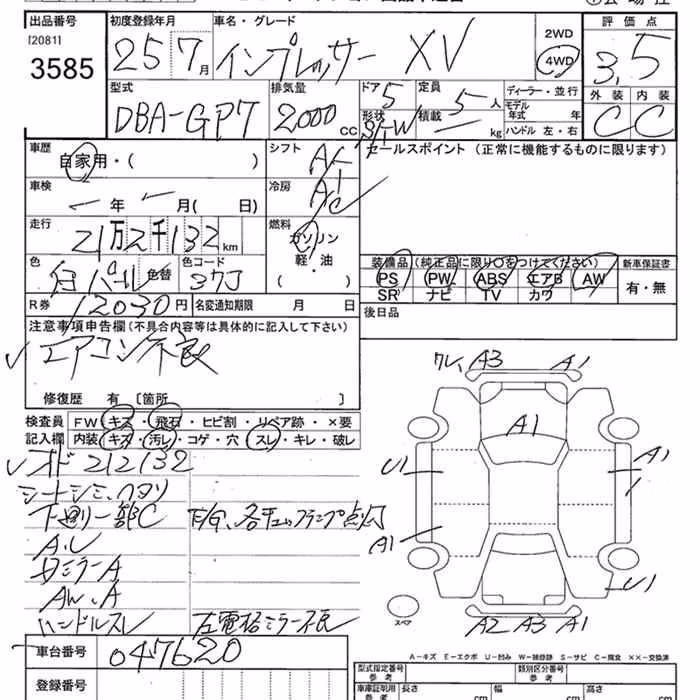 出品番号 初度登録年月 車名・グレード 評価点
[2081]
3585 25 7月 インプレッサー XV 2WD 4WD 3.5
型式 排気量 ドア 5 定員 5人 ディーラー・並行 外装 内装
DBA-GP7 2000cc 形状 S/W 積載 ー kg モデル年式 年 C C
ハンドル 左・右
車歴 シフト AT セールスポイント (正常に機能するものに限ります)
自家用・( )
車検 冷房 A/C
ー年 ー月( 日)
走行 21万2千132km 燃料 ガソリン 軽・油 ( )
色 白パール 色替 色コード 37J 装備品 (純正品に限り○をつけてください) 新車保証書
PS PW ABS エアB AW 有・無
SR ナビ TV カワ
R券 12030円 名変通知期限 月 日 後日品
注意事項申告欄(不具合内容等は具体的に記入して下さい)
エアコン不良
修復歴 有 [箇所 ]
ワレ、A3 A1
A1
検査員 FW キズ・飛石・ヒビ割・リペア跡・×要
記入欄 内装 キズ・汚レ・コゲ・穴・スレ・キレ・破レ
オド212132 U1 A1
シートシミ、ヘタリ
下回り一部C 各チェックランプ点灯
A1
A、U
ミラーA
AW、A U1
ハンドルスレ 左電格ミラー不良 スペア A2 A3 A1
車台番号 047620
A-キズ E-エクボ U-凹み W-補修跡 S-サビ C-腐食 ××-交換済
登録番号 型式指定番号 参考 類別区分番号 参考
車庫証明用 参考 長さ cm 幅 cm 高さ cm